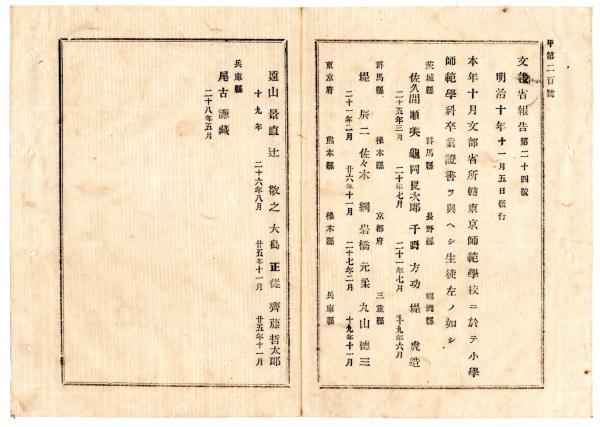 甲第二百號
文部省報告 第二十四號
明治十年十一月五日發行
本年十月文部省所轄東京師範學校ニ於テ小學
師範學科卒業證書ヲ與ヘシ生徒左ノ如シ
茨城縣 群馬縣 長野縣 縣
佐久間順英 龜岡 次郎 千野方功 堤虎造
二十五年三月 二十年七月 二十一年七月 二十九年六月
群馬縣 橡木縣 京都府 三重縣
堤辰二 佐々木綱 岩橋元柔 丸山德三
二十一年二月 廿六年十一月 二十七年二月 十九年十一月
東京府 熊本縣 橡木縣 兵庫縣
遠山景直 辻敬之 大島正 齊藤哲太郎
十九年 二十六年八月 廿五年十一月 廿五年十一月
兵庫縣
尾古 藏
二十八年五月